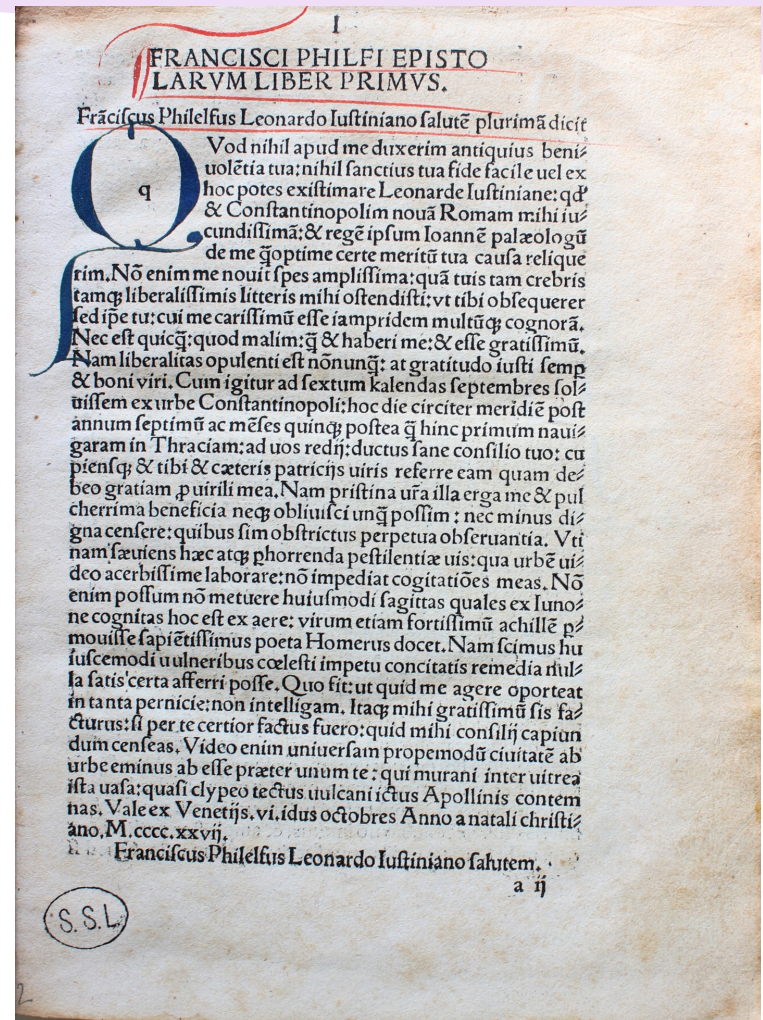 I
FRANCISCI PHILFI EPISTO
LARVM LIBER PRIMVS.
Frāciſcus Philelfus Leonardo Iuſtiniano ſalutē plurimā dicit
q
Vod nihil apud me duxerim antiquius beni⸗
uolētia tua: nihil ſanctius tua fide facile uel ex
hoc potes exiſtimare Leonarde Iuſtiniane: qd'
& Conſtantinopolim nouā Romam mihi iu⸗
cundiſſimā: & regē ipſum Ioannē palæologū
de me q̄optime certe meritū tua cauſa relique
rim. Nō enim me nouit ſpes ampliſſima: quā tuis tam crebris
tamqꝫ liberaliſſimis litteris mihi oſtendiſti: vt tibi obſequerer
ſed ip̄e tu: cui me cariſſimū eſſe iampridem multūqꝫ cognorā.
Nec eſt quicq̄: quod malim: q̄ & haberi me: & eſſe gratiſſimū.
Nam liberalitas opulenti eſt nōnunq̄: at gratitudo iuſti ſemꝑ
& boni viri. Cum igitur ad ſextum kalendas ſeptembres ſol⸗
uiſſem ex urbe Conſtantinopoli: hoc die circiter meridiē poſt
annum ſeptimū ac mēſes quinqꝫ poſtea q̄ hinc primum naui⸗
garam in Thraciam: ad uos redij: ductus ſane conſilio tuo: cu
pienſqꝫ & tibi & cæteris patricijs uiris referre eam quam de⸗
beo gratiam ꝓ uirili mea. Nam priſtina ur̄a illa erga me & pul
cherrima beneficia neqꝫ obliuiſci unq̄ poſſim: nec minus di⸗
gna cenſere: quibus ſim obſtrictus perpetua obſeruantia. Vti
nam ſæuiens hæc atqꝫ ꝑhorrenda peſtilentiæ uis: qua urbē ui⸗
deo acerbiſſime laborare: nō impediat cogitatiōes meas. Nō
enim poſſum nō metuere huiuſmodi ſagittas quales ex Iuno⸗
ne cognitas hoc eſt ex aere: virum etiam fortiſſimū achillē ꝑ⸗
mouiſſe ſapiētiſſimus poeta Homerus docet. Nam ſcimus hu
iuſcemodi uulneribus cœleſti impetu concitatis remedia nul⸗
la ſatis certa afferri poſſe. Quo fit: ut quid me agere oporteat
in tanta pernicie: non intelligam. Itaqꝫ mihi gratiſſimū ſis fa⸗
cturus: ſi per te certior factus fuero: quid mihi conſilij capiun
dum cenſeas. Video enim uniuerſam propemodū ciuitatē ab
urbe eminus ab eſſe præter unum te: qui murani inter uitrea
iſta uaſa: quaſi clypeo tectus uulcani ictus Apollinis contem
nas. Vale ex Venetijs. vi. idus octobres Anno a natali chriſti⸗
ano. M.cccc.xxvij.
Franciſcus Philelfus Leonardo Iuſtiniano ſalutem.
a ij
S.S.L
2